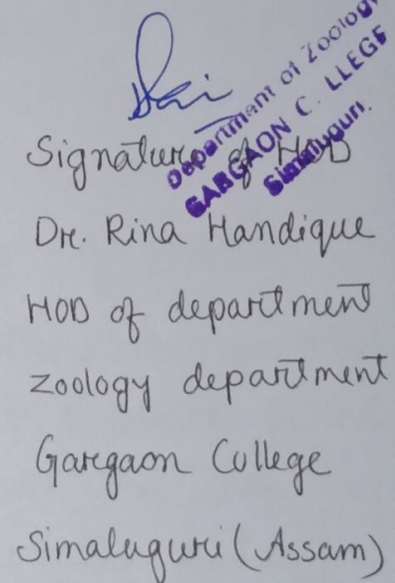 Department of Zoology
GARGAON C. LLEGE
Simaluguri.
Signature of HOD
Dr. Rina Handique
HOD of department
Zoology department
Gargaon College
Simaluguri (Assam)